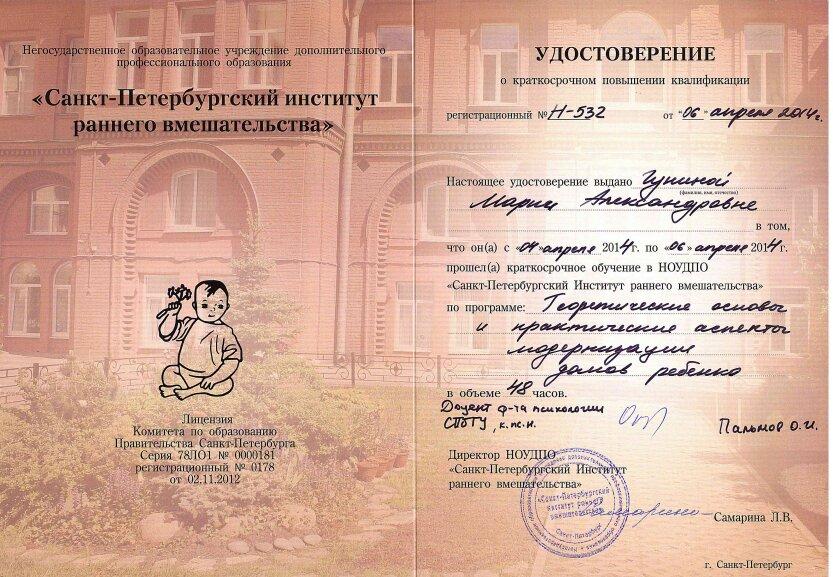 Негосударственное образовательное учреждение дополнительного
профессионального образования
«Санкт-Петербургский институт
раннего вмешательства»
Лицензия
Комитета по образованию
Правительства Санкт-Петербурга
Серия 78ЛО1 № 0000181
регистрационный № 0178
от 02.11.2012
УДОСТОВЕРЕНИЕ
о краткосрочном повышении квалификации
регистрационный № Н-532 от "06" апреля 2014г.
Настоящее удостоверение выдано
(фамилия, имя, отчество)
Марии Александровне
в том,
что он(а) с «04» апреля 2014г. по «06» апреля 2014г.
прошел(а) краткосрочное обучение в НОУДПО
«Санкт-Петербургский Институт раннего вмешательства»
по программе: Теоретические основы
и практические аспекты
модернизации
домов ребенка
в объеме 48 часов.
Доцент ф-та психологии
, к.пс.н.
Пальмов О.И.
Директор НОУДПО
«Санкт-Петербургский Институт
раннего вмешательства»
«Санкт-Петербургский
институт раннего
вмешательства»
Санкт-Петербург
Самарина Л.В.
г. Санкт-Петербург